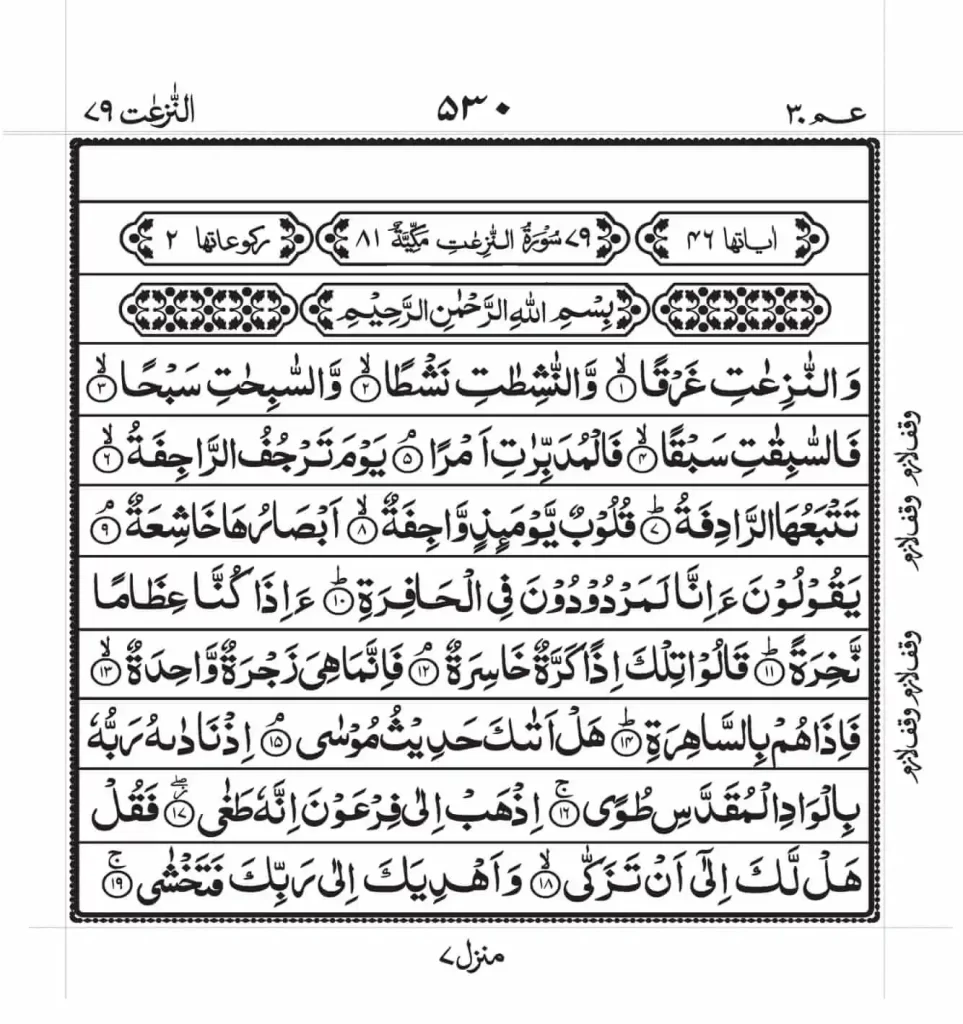 عـم ٣٠
٥٣٠
النّٰزعٰت ٧٩
اٰیاتها ٤٦
٧٩ سُوْرَةُ النّٰزِعٰتِ مَكِّيَّةٌ ٨١
ركوعاتها ٢
بِسْمِ اللهِ الرَّحْمٰنِ الرَّحِيْمِ
وَالنّٰزِعٰتِ غَرْقًا ۙ‏﴿١﴾ وَّالنّٰشِطٰتِ نَشْطًا ۙ‏﴿٢﴾ وَّالسّٰبِحٰتِ سَبْحًا ۙ‏﴿٣﴾
فَالسّٰبِقٰتِ سَبْقًا ۙ‏﴿٤﴾ فَالْمُدَبِّرٰتِ اَمْرًا ۘ‏﴿٥﴾ يَوْمَ تَرْجُفُ الرَّاجِفَةُ ۙ‏﴿٦﴾
تَتْبَعُهَا الرَّادِفَةُ ؕ‏﴿٧﴾ قُلُوْبٌ يَّوْمَىِٕذٍ وَّاجِفَةٌ ۙ‏﴿٨﴾ اَبْصَارُهَا خَاشِعَةٌ ۘ‏﴿٩﴾
يَقُوْلُوْنَ ءَاِنَّا لَمَرْدُوْدُوْنَ فِى الْحَافِرَةِ ؕ‏﴿١٠﴾ ءَاِذَا كُنَّا عِظَامًا
نَّخِرَةً ؕ‏﴿١١﴾ قَالُوْا تِلْكَ اِذًا كَرَّةٌ خَاسِرَةٌ ۘ‏﴿١٢﴾ فَاِنَّمَا هِىَ زَجْرَةٌ وَّاحِدَةٌ ۙ‏﴿١٣﴾
فَاِذَا هُمْ بِالسَّاهِرَةِ ؕ‏﴿١٤﴾ هَلْ اَتٰىكَ حَدِيْثُ مُوْسٰى ۘ‏﴿١٥﴾ اِذْ نَادٰىهُ رَبُّهٗ
بِالْوَادِ الْمُقَدَّسِ طُوًى ۚ‏﴿١٦﴾ اِذْهَبْ اِلٰى فِرْعَوْنَ اِنَّهٗ طَغٰى ۖ‏﴿١٧﴾ فَقُلْ
هَلْ لَّكَ اِلٰٓى اَنْ تَزَكّٰى ۙ‏﴿١٨﴾ وَاَهْدِيَكَ اِلٰى رَبِّكَ فَتَخْشٰى ۚ‏﴿١٩﴾
وقف لازم
وقف لازم
وقف لازم
وقف لازم
منزل ٧